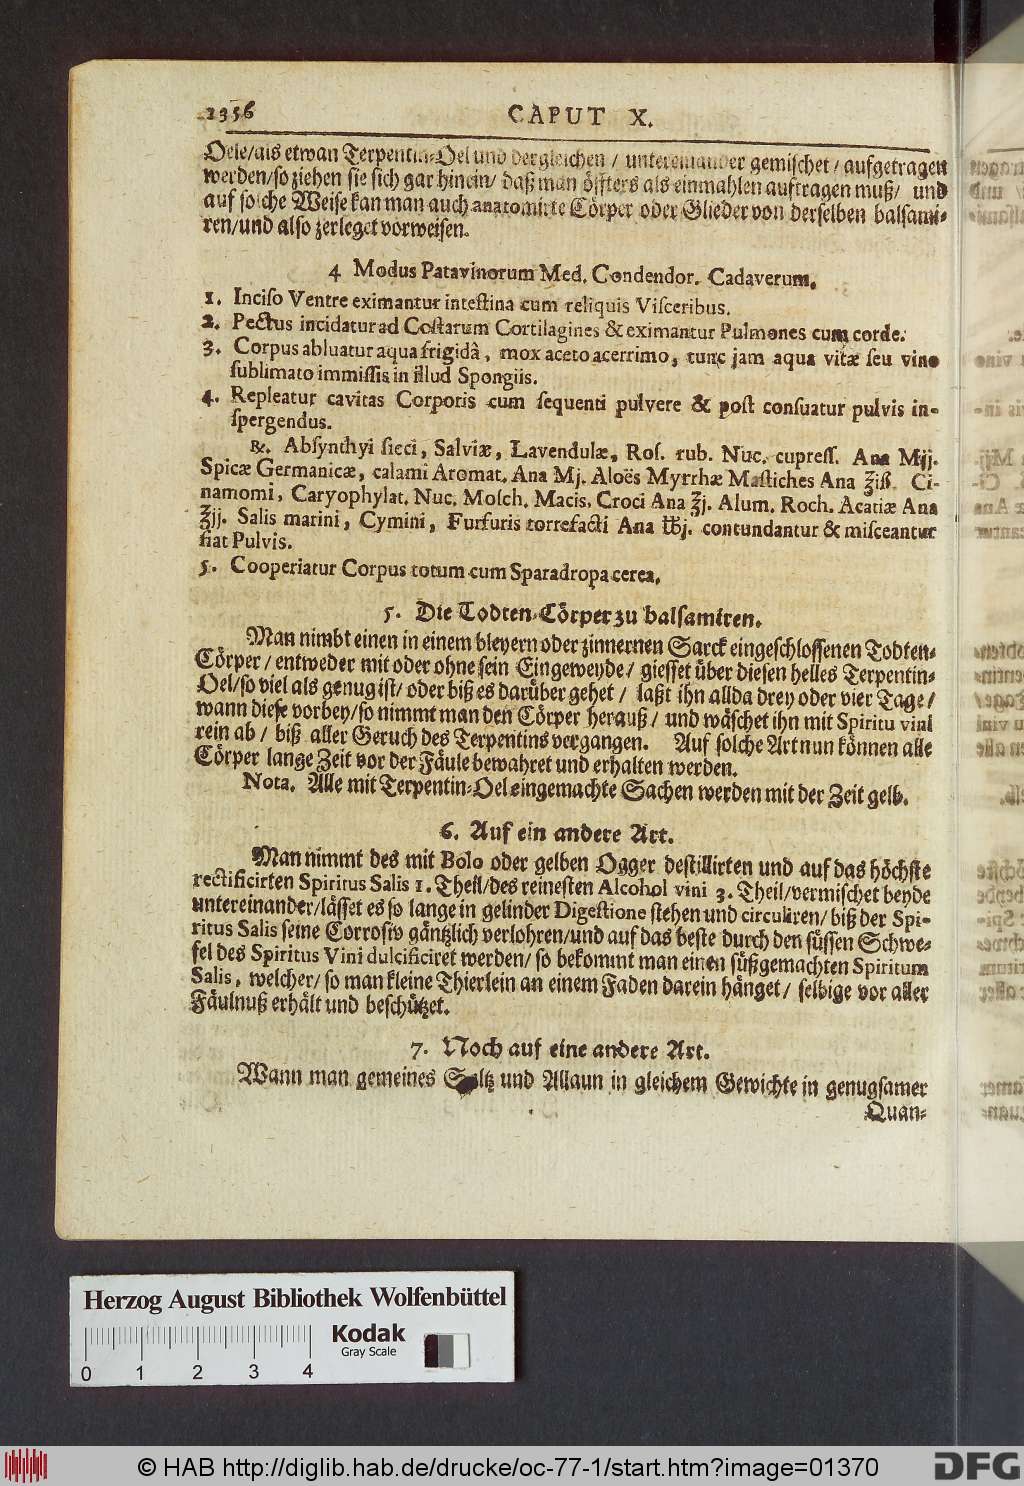 1356 CAPUT X.
Oele/als etwan Terpentin-Oel und dergleichen / untereinander gemischet / aufgetragen
werden/so ziehen sie sich gar hinein/ daß man öffters als einmahlen auftragen muß/ und
auf solche Weise kan man auch anatomirte Cörper oder Glieder von derselben balsami-
ren/und also zerleget vorweisen.
4 Modus Patavinorum Med. Condendor. Cadaverum.
1. Inciso Ventre eximantur intestina cum reliquis Visceribus.
2. Pectus incidatur ad Costarum Cortilagines & eximantur Pulmones cum corde.
3. Corpus abluatur aqua frigidâ, mox aceto acerrimo, tunc jam aqua vitæ seu vino
sublimato immissis in illud Spongiis.
4. Repleatur cavitas Corporis cum sequenti pulvere & post consuatur pulvis in-
spergendus.
℞. Absynthyi sicci, Salviæ, Lavendulæ, Ros. rub. Nuc. cupress. Ana Mjj.
Spicæ Germanicæ, calami Aromat. Ana Mj. Aloës Myrrhæ Mastiches Ana ℥iß. Ci-
namomi, Caryophylat. Nuc. Mosch. Macis. Croci Ana ℥j. Alum. Roch. Acatiæ Ana
℥jj. Salis marini, Cymini, Furfuris torrefacti Ana ℔j. contundantur & misceantur
fiat Pulvis.
5. Cooperiatur Corpus totum cum Sparadropa cerea.
5. Die Todten-Cörper zu balsamiren.
Man nimbt einen in einem bleyern oder zinnernen Sarck eingeschlossenen Todten-
Cörper / entweder mit oder ohne sein Eingeweyde / giesset über diesen helles Terpentin-
Oel/so viel als genug ist/ oder biß es darüber gehet / laßt ihn allda drey oder vier Tage /
wann diese vorbey/so nimmt man den Cörper herauß / und wäschet ihn mit Spiritu vini
rein ab / biß aller Geruch des Terpentins vergangen. Auf solche Art nun können alle
Cörper lange Zeit vor der Fäule bewahret und erhalten werden.
Nota. Alle mit Terpentin-Oel eingemachte Sachen werden mit der Zeit gelb.
6. Auf ein andere Art.
Man nimmt des mit Bolo oder gelben Ogger destillirten und auf das höchste
rectificirten Spiritus Salis 1. Theil/des reinesten Alcohol vini 3. Theil/vermischet beyde
untereinander/lässet es so lange in gelinder Digestione stehen und circuliren/ biß der Spi-
ritus Salis seine Corrosiv gäntzlich verlohren/und auf das beste durch den süssen Schwe-
fel des Spiritus Vini dulcificiret werden/ so bekommt man einen süßgemachten Spiritum
Salis, welcher/ so man kleine Thierlein an einem Faden darein hänget / selbige vor aller
Fäulnuß erhält und beschützet.
7. Noch auf eine andere Art.
Wann man gemeines Saltz und Allaun in gleichem Gewichte in genugsamer
Quan-
Herzog August Bibliothek Wolfenbüttel
Kodak
Gray Scale
0 1 2 3 4
© HAB http://diglib.hab.de/drucke/oc-77-1/start.htm?image=01370
DFG